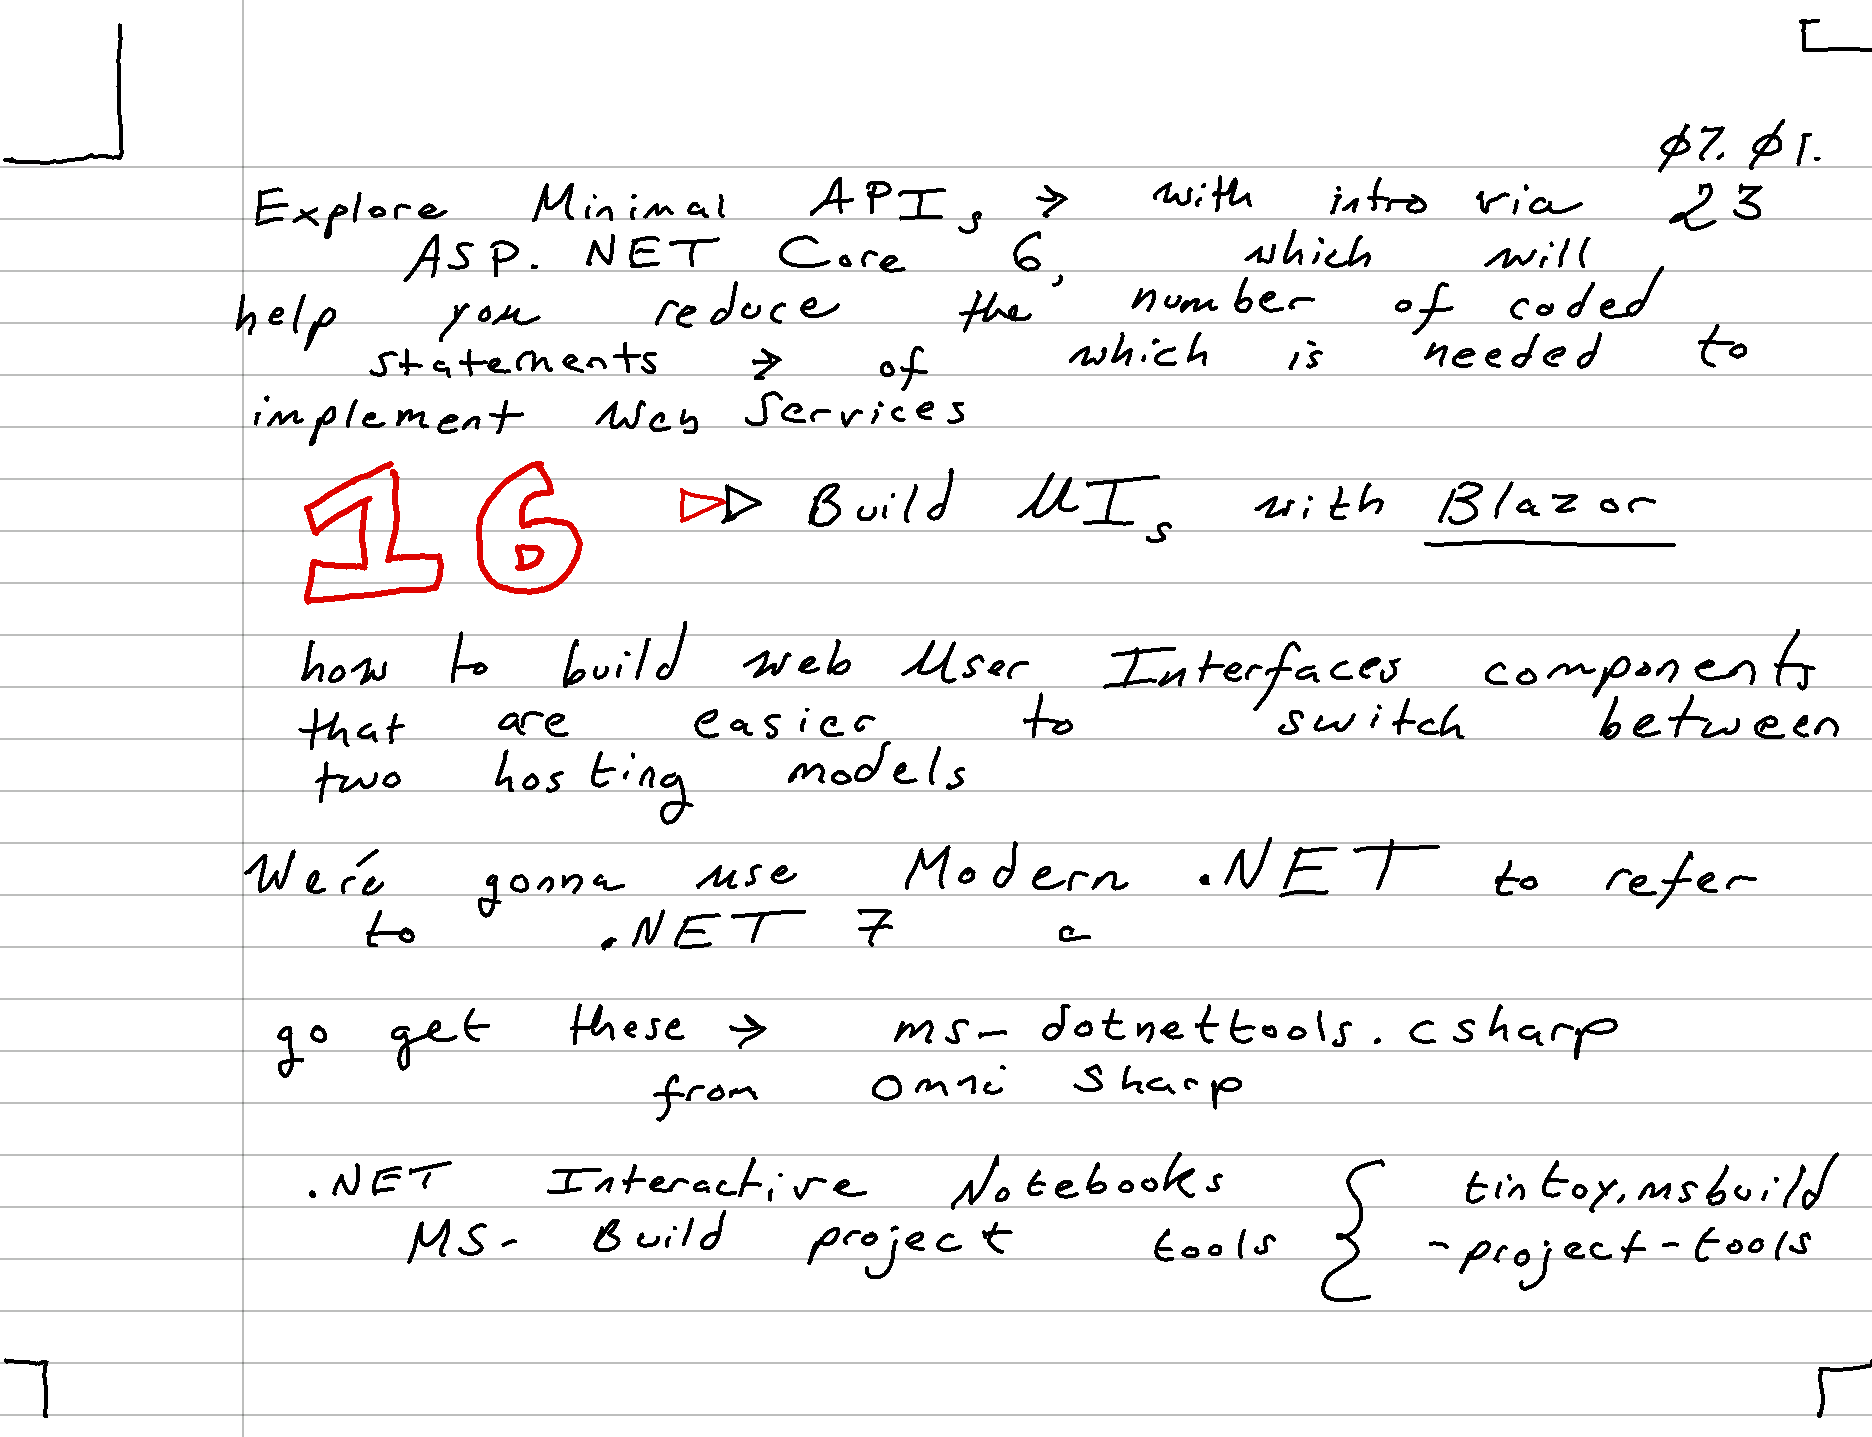 ø7. ø1.
Explore Minimal APIs → with intro via 23
ASP. NET Core 6, which will
help you reduce the number of coded
statements → of which is needed to
implement Web Services
16 ▷▷ Build UIs with Blazor
how to build web User Interfaces components
that are easier to switch between
two hosting models
We're gonna use Modern .NET to refer
to .NET 7
go get these → ms-dotnettools.csharp
from Omni Sharp
.NET Interactive Notebooks { tintoy.msbuild
MS-Build project tools -project-tools